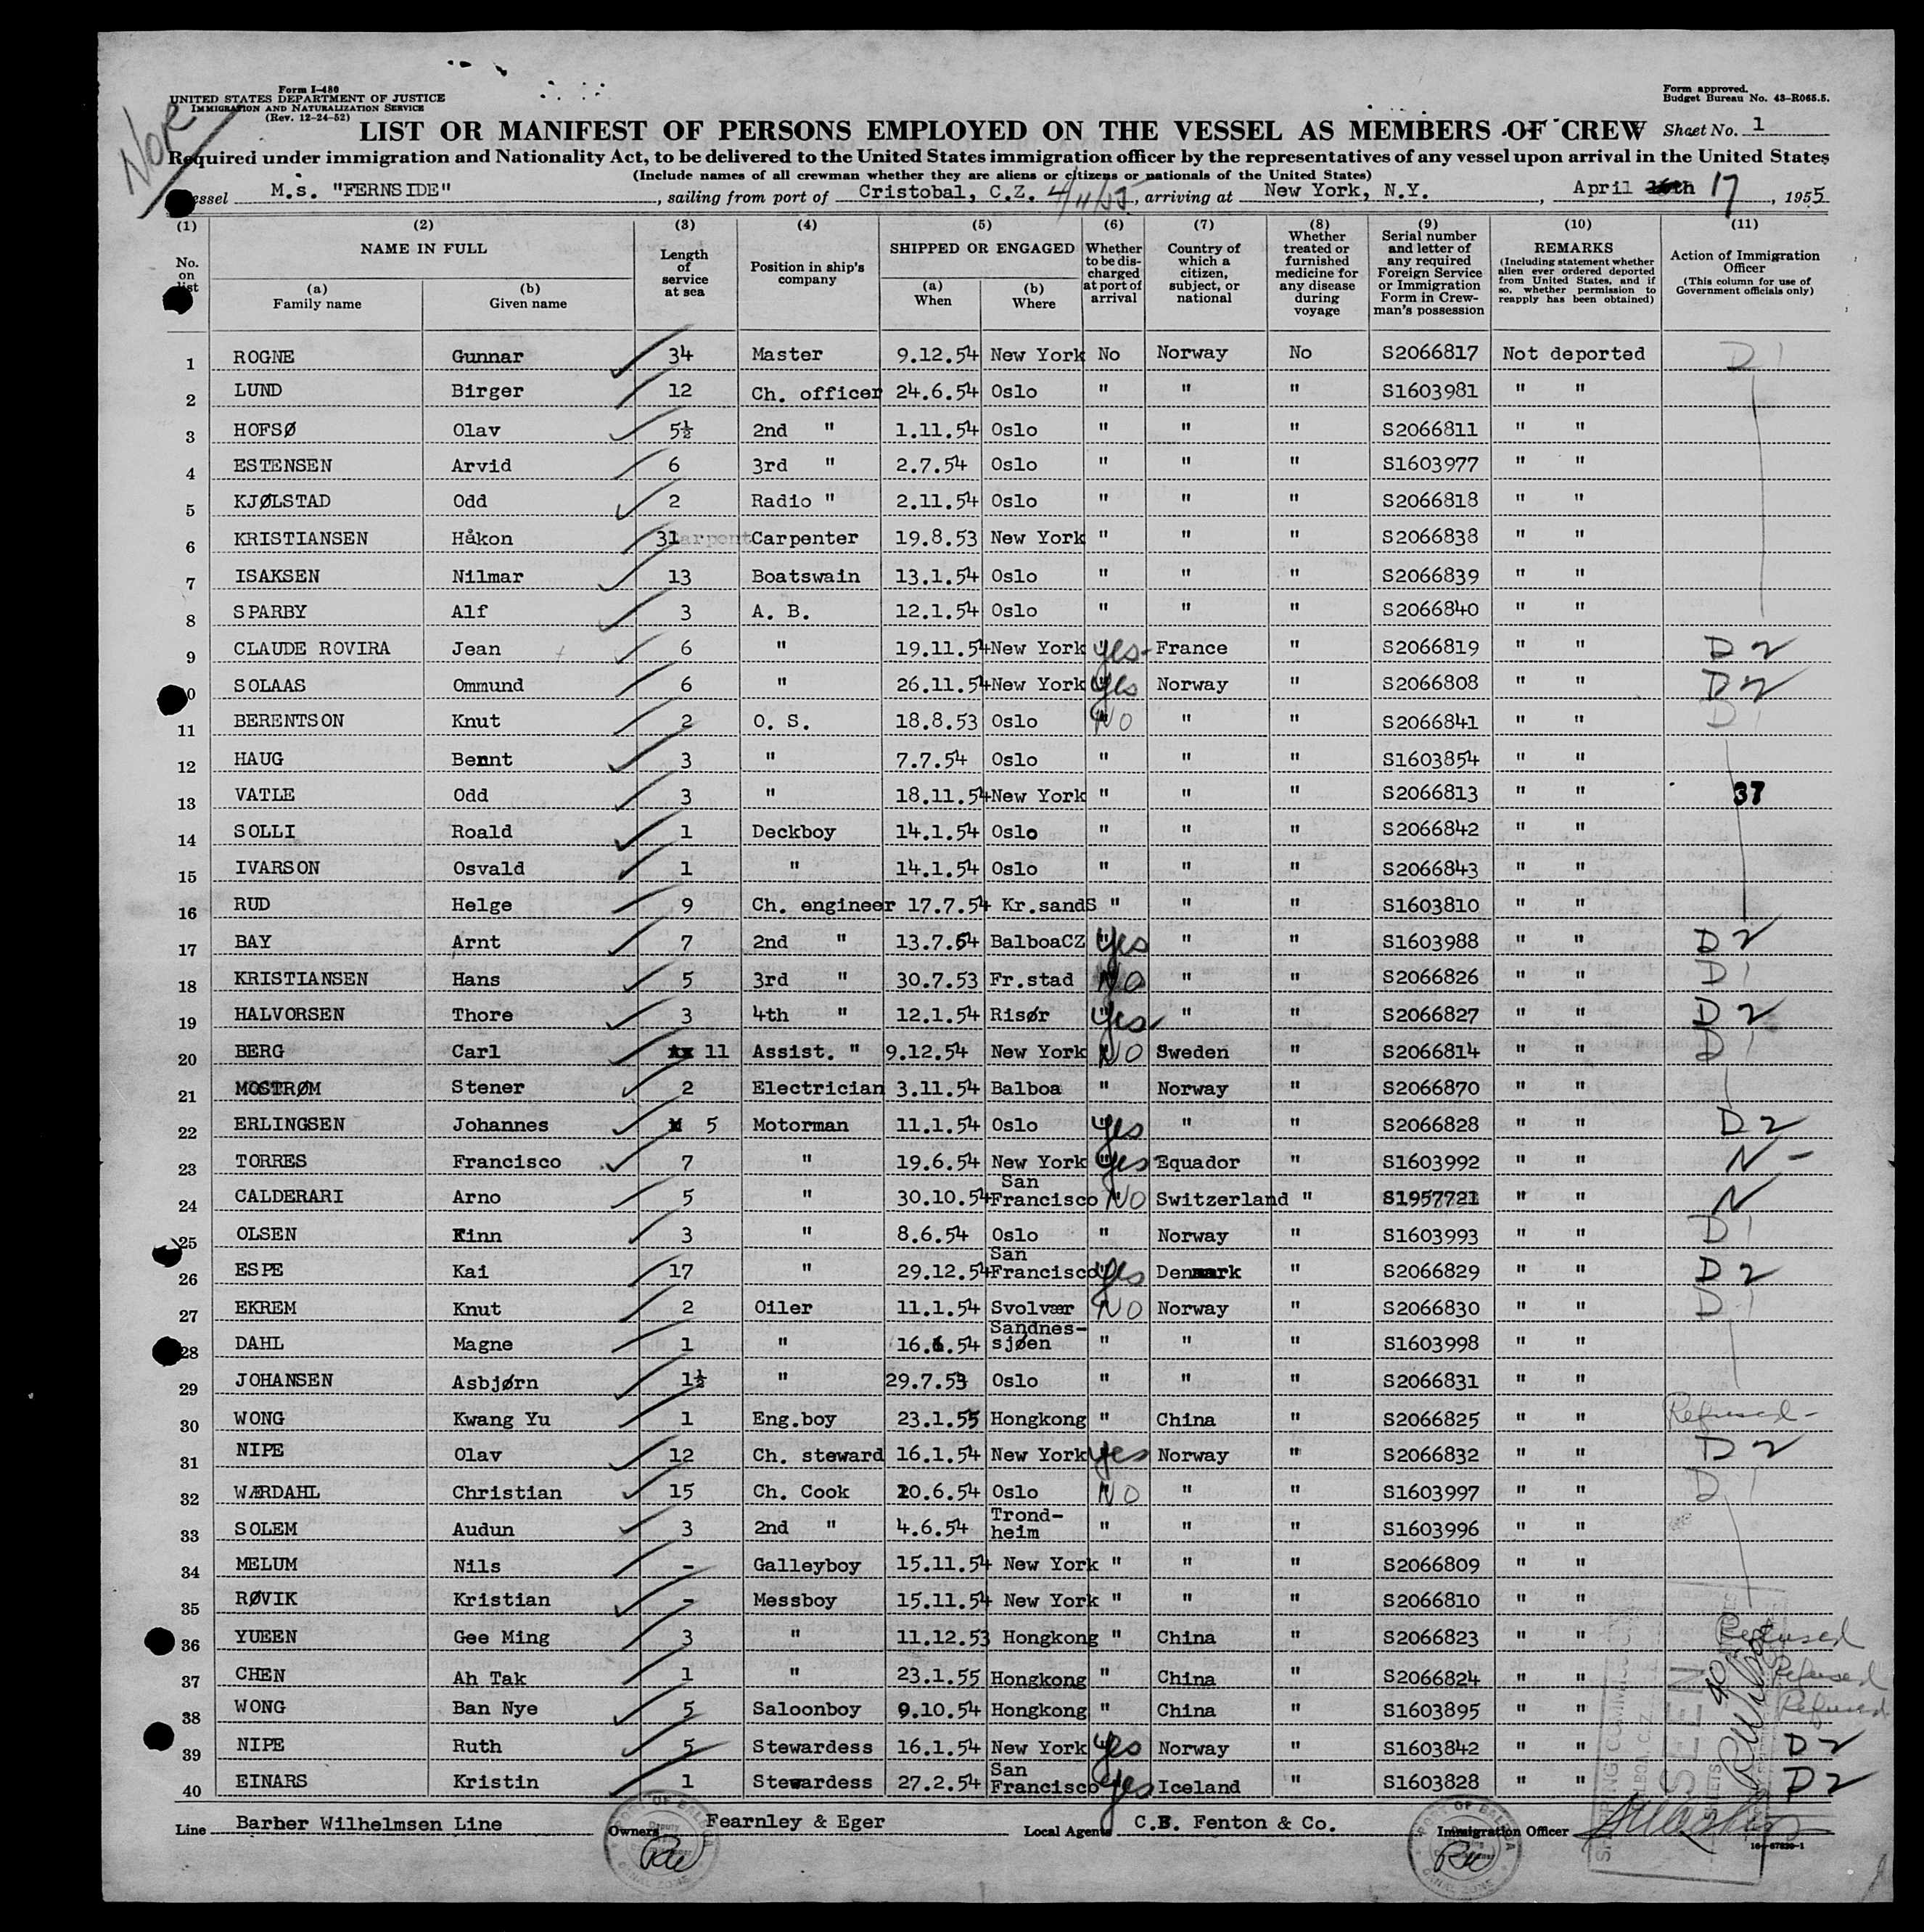 Form I-480
UNITED STATES DEPARTMENT OF JUSTICE
IMMIGRATION AND NATURALIZATION SERVICE
(Rev. 12-24-52)
Form approved.
Budget Bureau No. 43-R065.5.
Nor
LIST OR MANIFEST OF PERSONS EMPLOYED ON THE VESSEL AS MEMBERS OF CREW Sheet No. 1
Required under immigration and Nationality Act, to be delivered to the United States immigration officer by the representatives of any vessel upon arrival in the United States
(Include names of all crewman whether they are aliens or citizens or nationals of the United States)
essel M.s. "FERNSIDE", sailing from port of Cristobal, C.Z. 4/11/55, arriving at New York, N.Y., April 16th 17, 1955
(1) (2) (3) (4) (5) (6) (7) (8) (9) (10) (11)
No. on list
NAME IN FULL
(a) Family name
(b) Given name
Length of service at sea
Position in ship's company
SHIPPED OR ENGAGED
(a) When
(b) Where
Whether to be discharged at port of arrival
Country of which a citizen, subject, or national
Whether treated or furnished medicine for any disease during voyage
Serial number and letter of any required Foreign Service or Immigration Form in Crewman's possession
REMARKS
(Including statement whether alien ever ordered deported from United States, and if so, whether permission to reapply has been obtained)
Action of Immigration Officer
(This column for use of Government officials only)
1 ROGNE Gunnar 34 Master 9.12.54 New York No Norway No S2066817 Not deported D1
2 LUND Birger 12 Ch. officer 24.6.54 Oslo " " " S1603981 " "
3 HOFSØ Olav 5½ 2nd " 1.11.54 Oslo " " " S2066811 " "
4 ESTENSEN Arvid 6 3rd " 2.7.54 Oslo " " " S1603977 " "
5 KJØLSTAD Odd 2 Radio " 2.11.54 Oslo " " " S2066818 " "
6 KRISTIANSEN Håkon 31 Carpenter 19.8.53 New York " " " S2066838 " "
7 ISAKSEN Nilmar 13 Boatswain 13.1.54 Oslo " " " S2066839 " "
8 SPARBY Alf 3 A. B. 12.1.54 Oslo " " " S2066840 " "
9 CLAUDE ROVIRA Jean 6 " 19.11.54 New York yes- France " S2066819 " " D2
10 SOLAAS Ommund 6 " 26.11.54 New York Yes Norway " S2066808 " " D2
11 BERENTSON Knut 2 O. S. 18.8.53 Oslo No " " S2066841 " " D1
12 HAUG Bennt 3 " 7.7.54 Oslo " " " S1603854 " "
13 VATLE Odd 3 " 18.11.54 New York " " " S2066813 " " 37
14 SOLLI Roald 1 Deckboy 14.1.54 Oslo " " " S2066842 " "
15 IVARSON Osvald 1 " 14.1.54 Oslo " " " S2066843 " "
16 RUD Helge 9 Ch. engineer 17.7.54 Kr.sandS " " " S1603810 " "
17 BAY Arnt 7 2nd " 13.7.54 BalboaCZ Yes " " S1603988 " " D2
18 KRISTIANSEN Hans 5 3rd " 30.7.53 Fr.stad No " " S2066826 " " D1
19 HALVORSEN Thore 3 4th " 12.1.54 Risør Yes " " S2066827 " " D2
20 BERG Carl 11 Assist. " 9.12.54 New York No Sweden " S2066814 " " D1
21 MOSTRØM Stener 2 Electrician 3.11.54 Balboa " Norway " S2066870 " "
22 ERLINGSEN Johannes 5 Motorman 11.1.54 Oslo yes " " S2066828 " " D2
23 TORRES Francisco 7 " 19.6.54 New York Yes Equador " S1603992 " " N -
24 CALDERARI Arno 5 " 30.10.54 San Francisco No Switzerland " S1957721 " " N
25 OLSEN Finn 3 " 8.6.54 Oslo " Norway " S1603993 " " D1
26 ESPE Kai 17 " 29.12.54 San Francisco Yes Denmark " S2066829 " " D2
27 EKREM Knut 2 Oiler 11.1.54 Svolvær No Norway " S2066830 " " D1
28 DAHL Magne 1 " 16.6.54 Sandnes-sjøen " " " S1603998 " "
29 JOHANSEN Asbjørn 1½ " 29.7.53 Oslo " " " S2066831 " "
30 WONG Kwang Yu 1 Eng.boy 23.1.55 Hongkong " China " S2066825 " " Refused-
31 NIPE Olav 12 Ch. steward 16.1.54 New York yes Norway " S2066832 " " D2
32 WÆRDAHL Christian 15 Ch. Cook 20.6.54 Oslo No " " S1603997 " " D1
33 SOLEM Audun 3 2nd " 4.6.54 Trond-heim " " " S1603996 " "
34 MELUM Nils - Galleyboy 15.11.54 New York " " " S2066809 " "
35 RØVIK Kristian - Messboy 15.11.54 New York " " " S2066810 " "
36 YUEEN Gee Ming 3 " 11.12.53 Hongkong " China " S2066823 " " Refused
37 CHEN Ah Tak 1 " 23.1.55 Hongkong " China " S2066824 " " Refused
38 WONG Ban Nye 5 Saloonboy 9.10.54 Hongkong " China " S1603895 " " Refused
39 NIPE Ruth 5 Stewardess 16.1.54 New York Yes Norway " S1603842 " " D2
40 EINARS Kristin 1 Stewardess 27.2.54 San Francisco Yes Iceland " S1603828 " " D2
SEEN
40
Line Barber Wilhelmsen Line Owners Fearnley & Eger Local Agents C.B. Fenton & Co. Immigration Officer
PORT OF BALBOA
CANAL ZONE
PORT OF BALBOA
CANAL ZONE